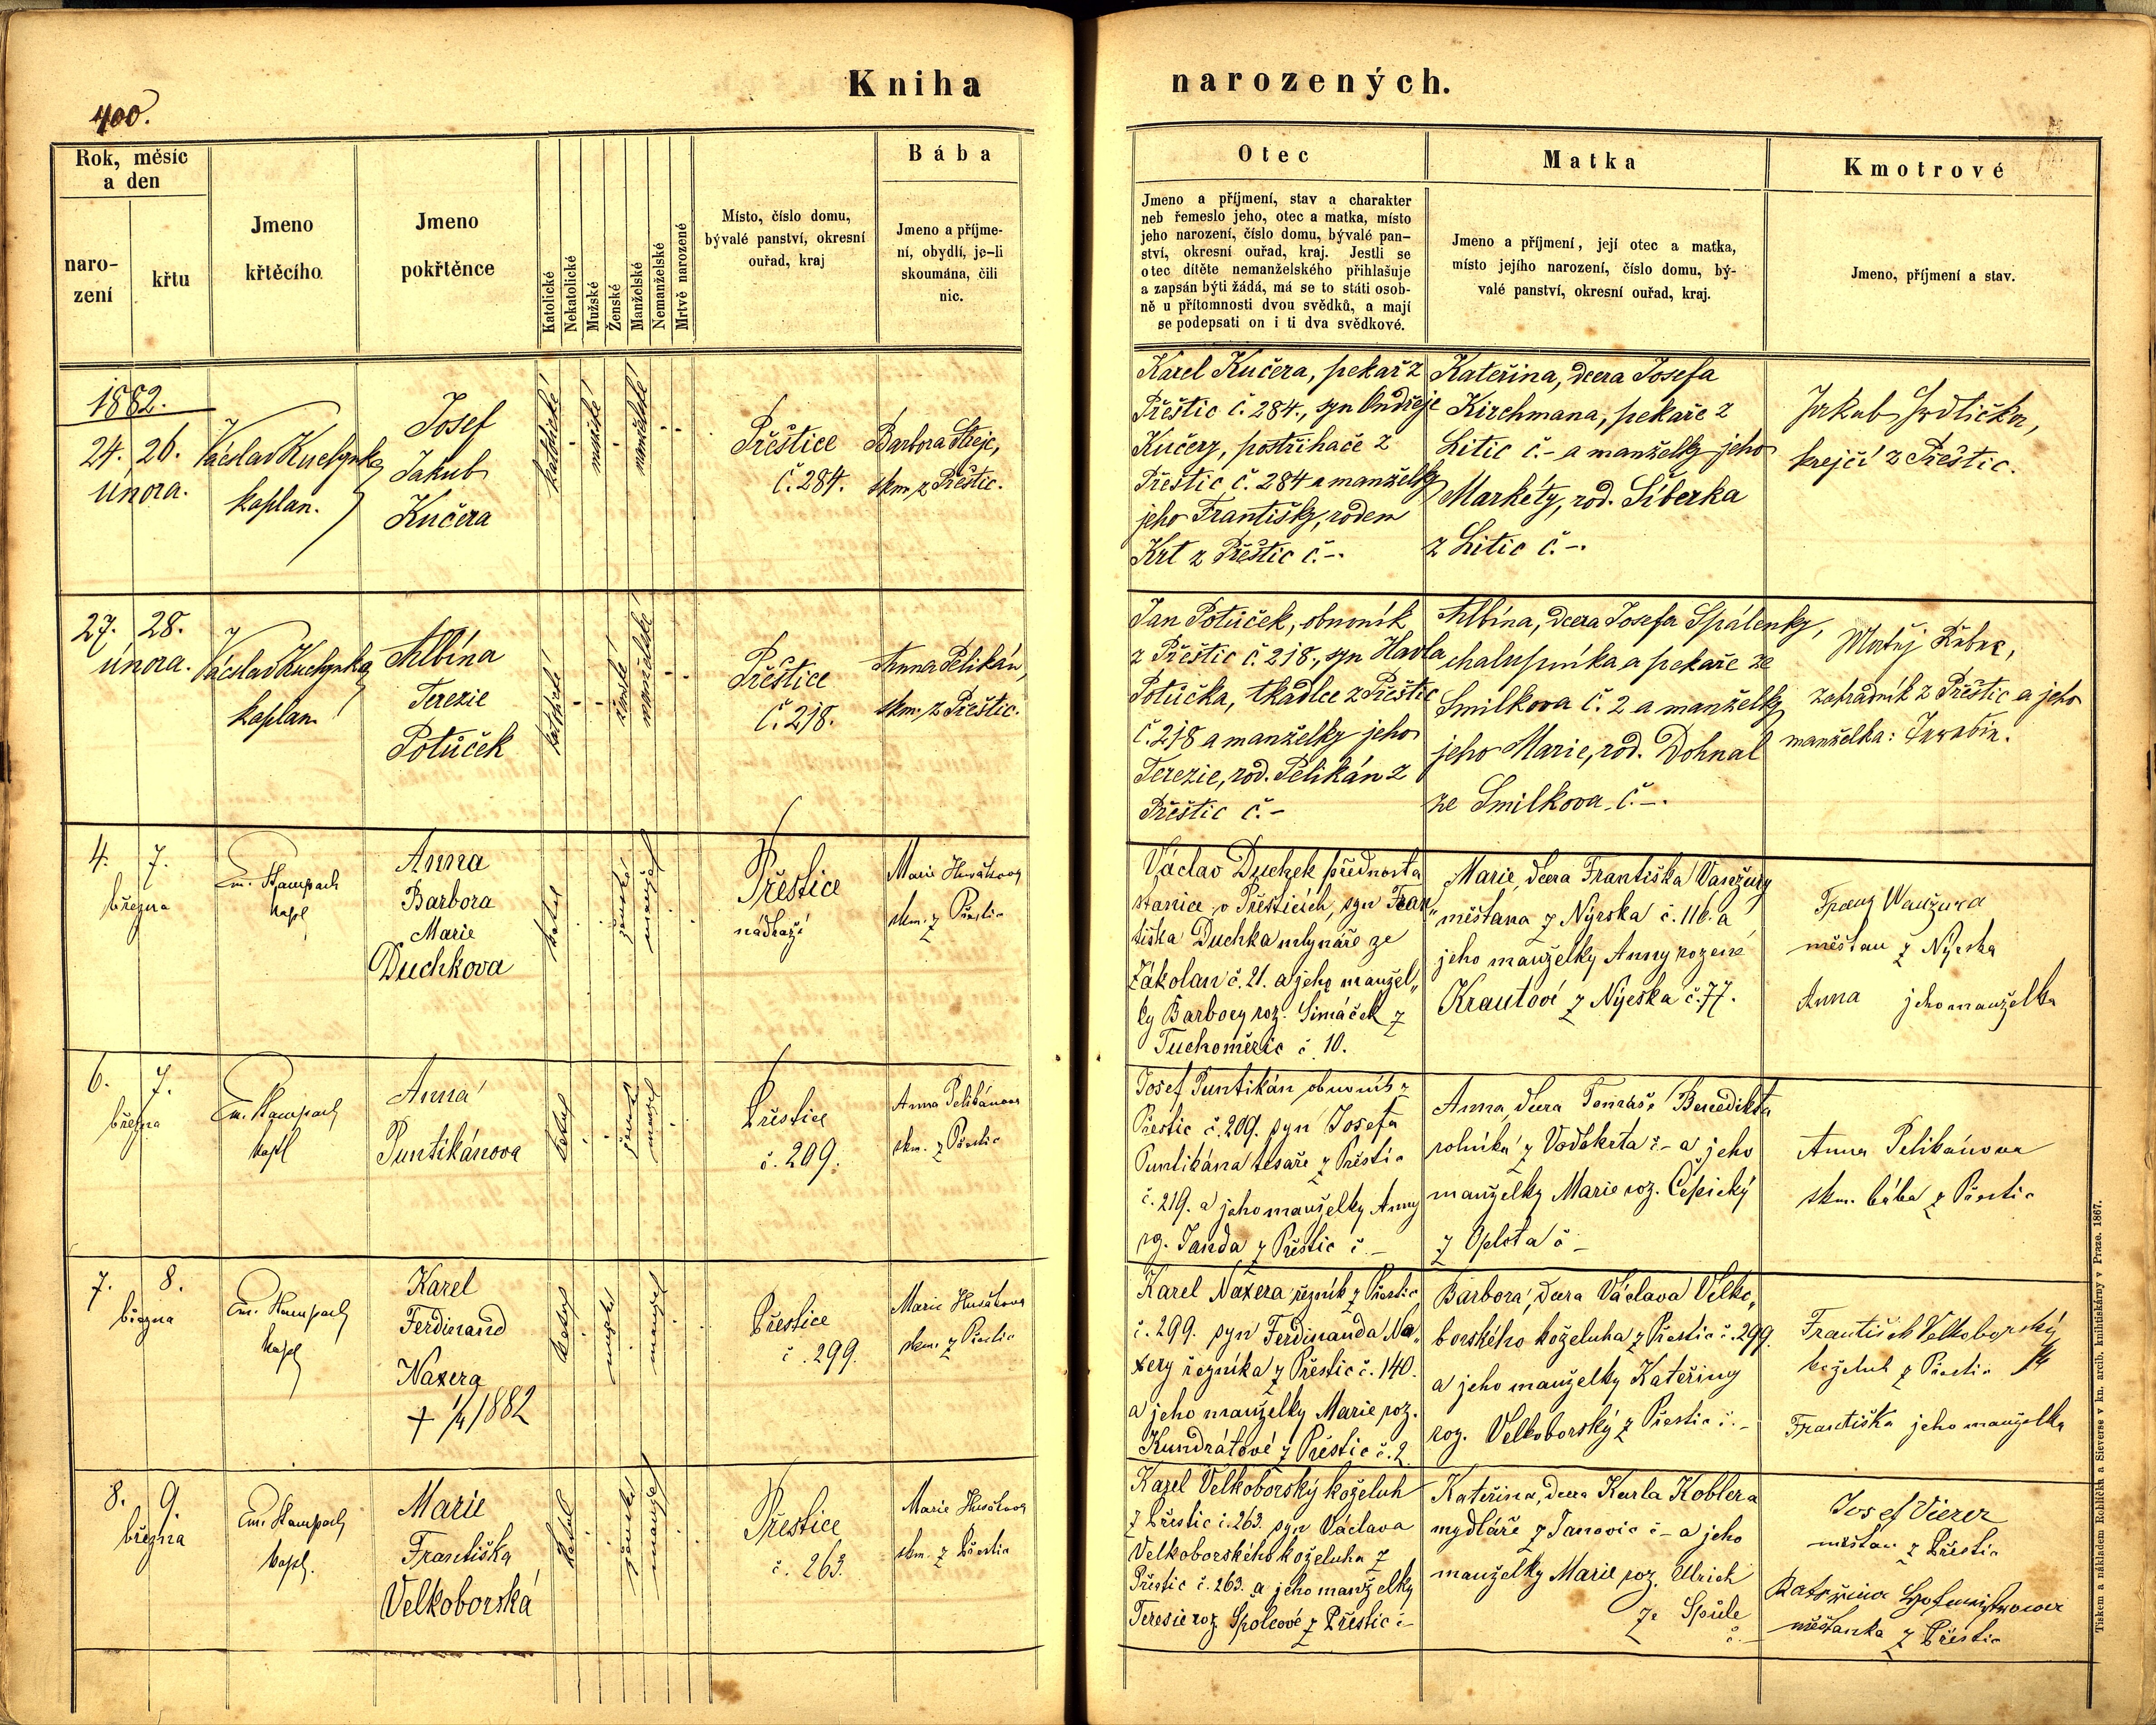 400.
Kniha narozených.
Rok, měsíc
a den
naro-
zení
křtu
Jmeno
křtěcího
Jmeno
pokřtěnce
Katolické
Nekatolické
Mužské
Ženské
Manželské
Nemanželské
Mrtvě narozené
Místo, číslo domu,
bývalé panství, okresní
ouřad, kraj
Bába
Jmeno a příjme-
ní, obydlí, je-li
skoumána, čili
nic.
Otec
Jmeno a příjmení, stav a charakter
neb řemeslo jeho, otec a matka, místo
jeho narození, číslo domu, bývalé pan-
ství, okresní ouřad, kraj. Jestli se
otec dítěte nemanželského přihlašuje
a zapsán býti žádá, má se to státi osob-
ně u přítomnosti dvou svědků, a mají
se podepsati on i ti dva svědkové.
Matka
Jmeno a příjmení, její otec a matka,
místo jejího narození, číslo domu, bý-
valé panství, okresní ouřad, kraj.
Kmotrové
Jmeno, příjmení a stav.
1882.
24. 26.
února.
Václav Kuchynka
kaplan.
Josef
Jakub
Kučera
katolické
mužské
manželské
Přeštice
č. 284.
Barbora Streje,
skm. z Přeštic.
Karel Kučera, pekař z
Přeštic č. 284., syn Ondřeje
Kučery, postřihače z
Přeštic č. 284 a manželky
jeho Františky, rodem
Krt z Přeštic č.-.
Kateřina, dcera Josefa
Kirchmana, pekaře z
Litic č.- a manželky jeho
Markéty, rod. Síberka
z Litic č.-.
Jakub
krejčí z Přeštic.
27. 28.
února.
Václav Kuchynka
kaplan
Albína
Terezie
Potůček
katolické
ženské
manželské
Přeštice
č. 218.
Anna Pelikán,
skm. z Přeštic.
Jan Potůček, obuvník
z Přeštic č. 218., syn Havla
Potůčka, tkadlce z Přeštic
č. 218 a manželky jeho
Terezie, rod. Pelikán z
Přeštic č.-
Albína, dcera Josefa Spálenky,
chalupníka a pekaře ze
Smilkova č. 2 a manželky
jeho Marie, rod. Dohnal
ze Smilkova č.-.
Matěj
zahradník z Přeštic a jeho
manželka:
4. 7.
března
Em. Stampach
kapl
Anna
Barbora
Marie
Duchkova
katol
ženské
manžel
Přeštice
nádraží
Marie Husákova
skm. z Přeštic
Václav Duchek přednosta
stanice v Přešticích, syn Fran„
tiška Duchka mlynáře ze
Zákolan č. 21. a jeho manžel„
ky Barbory roz. Simáček z
Tuchoměřic č. 10.
Marie, dcera Františka Vanžury
měšťana z Nýrska č. 116. a
jeho manželky Anny rozené
Krautové z Nýrska č. 77.
Franz Wanžura
měšťan z Nýrska
Anna jeho manželka
6. 7.
března
Em. Stampach
kapl
Anna
Puntikánova
katol
ženské
manžel
Přeštice
č. 209.
Anna Pelikánova
skm. z Přeštic
Josef Puntikán obuvník z
Přeštic č. 209. syn Josefa
Puntikána tesaře z Přeštic
č. 219. a jeho manželky Anny
roz. Janda z Přeštic č.-
Anna, dcera Tomáše Benedikta
rolníka z Vodokrta č.- a jeho
manželky Marie roz. Čepický
z Oplota č-
Anna Pelikánova
skm. bába z Přeštic
7. 8.
března
Em. Stampach
kapl
Karel
Ferdinand
Naxera
+ 1/4 1882
katol
mužské
manžel
Přeštice
č. 299.
Marie Husákova
skm. z Přeštic
Karel Naxera řezník z Přeštic
č. 299. syn Ferdinanda Na„
xery řezníka z Přeštic č. 140.
a jeho manželky Marie roz.
Kundrátové z Přeštic č. 2.
Barbora, dcera Václava Velko„
borského koželuha z Přeštic č. 299.
a jeho manželky Kateřiny
roz. Velkoborský z Přeštic č.-
František Velkoborský
koželuh z Přeštic
Františka jeho manželka
8. 9.
března
Em. Stampach
kapl.
Marie
Františka
Velkoborská
katol
ženské
manžel
Přeštice
č. 263.
Marie Husákova
skm. z Přeštic
Karel Velkoborský koželuh
z Přeštic č. 263. syn Václava
Velkoborského koželuha z
Přeštic č. 263. a jeho manželky
Teresie roz. Spoleové z Přeštic č-
Kateřina, dcera Karla Koblera
mydláře z Janovic č- a jeho
manželky Marie roz. Ulrich
ze Spůle
č.-
Josef Vierer
měšťan z Přeštic
Kateřina
měšťanka z Přeštic
Tiskem a nákladem Rohlíčka a Sieverse v kn. arcib. knihtiskárny v Praze. 1867.